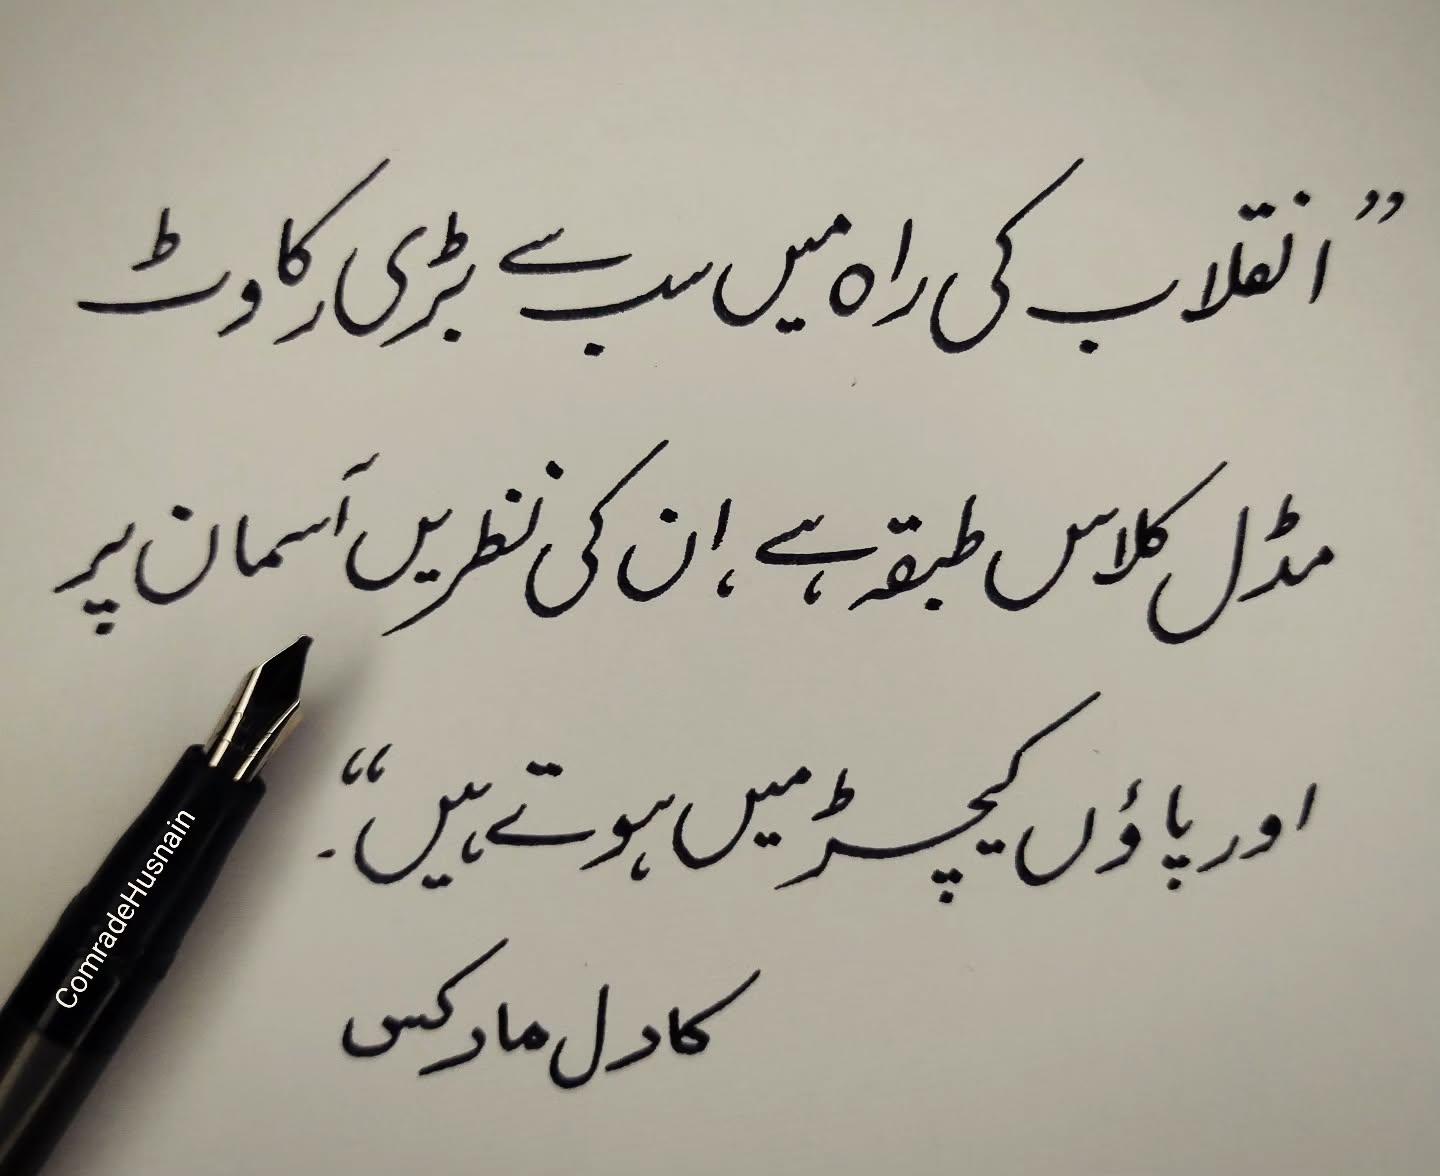 ”انقلاب کی راہ میں سب سے بڑی رکاوٹ
مڈل کلاس طبقہ ہے، ان کی نظریں آسمان پر
اور پاؤں کیچڑ میں ہوتے ہیں“۔
کارل مارکس
ComradeHusnain